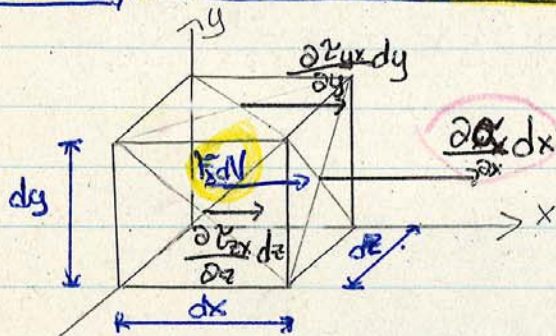 y
∂τyx/∂y dy
∂σx/∂x dx
dy
FxdV
x
∂τzx/∂z dz
dz
dx